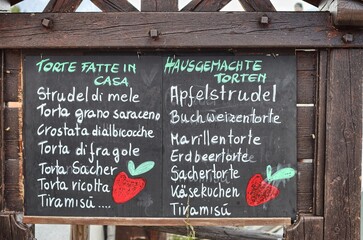 TORTE FATTE IN
CASA
Strudel di mele
Torta grano saraceno
Crostata di albicocche
Torta di fragole
Torta Sacher
Torta ricotta
Tiramisú....
HAUSGEMACHTE
TORTEN
Apfelstrudel
Buchweizentorte
Marillentorte
Erdbeertorte
Sachertorte
Käsekuchen
Tiramisú